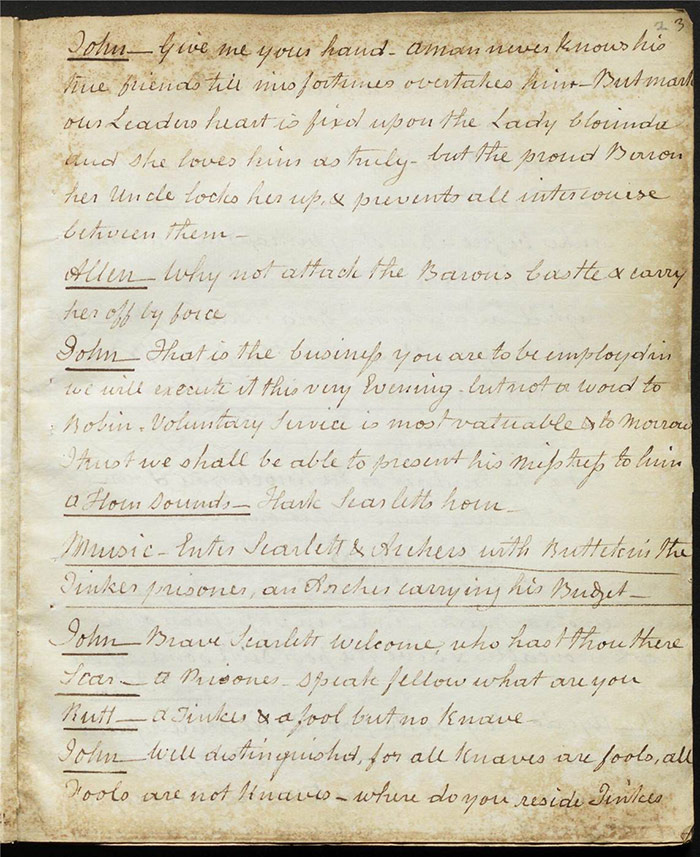 2 3
John - Give me your hand - a man never knows his
true friends till misfortunes overtakes him - But mark
our Leaders heart is fixd upon the Lady Clorinda
and she loves him as truly - but the proud Baron
her Uncle locks her up, & prevents all intercourse
between them -
Allen - Why not attack the Barons Castle & carry
her off by force
John - That is the businefs you are to be employd in
we will execute it this very Evening - but not a word to
Robin - Voluntary Service is most valuable & to Morrow
I trust we shall be able to present his Mifstrefs to him
a Horn sounds - Hark Scarletts horn -
Music - Enter Scarlett & Archers with Ruttekin the
Tinker prisoner, an Archer carrying his Budget -
John - Brave Scarlett welcome, who hast thou there
Scar - a Prisoner - speak fellow what are you
Rutt - a Tinker & a fool but no Knave -
John - Well distinguishd, for all Knaves are fools, all
Fools are not Knaves - where do you reside Tinker